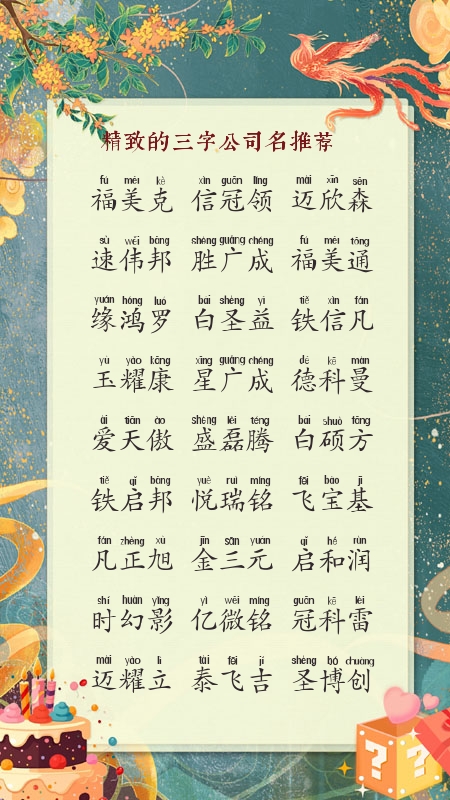 精致的三字公司名推荐
fú měi kè xìn guān lǐng mài xīn sēn
福美克 信冠领 迈欣森
sù wěi bāng shèng guǎng chéng fú měi tōng
速伟邦 胜广成 福美通
yuán hóng luó bái shèng yì tiě xìn fán
缘鸿罗 白圣益 铁信凡
yù yào kāng xīng guǎng chéng dé kē màn
玉耀康 星广成 德科曼
ài tiān ào shèng lěi téng bái shuò fāng
爱天傲 盛磊腾 白硕方
tiě qǐ bāng yuè ruì míng fēi bǎo jī
铁启邦 悦瑞铭 飞宝基
fán zhèng xù jīn sān yuán qǐ hé rùn
凡正旭 金三元 启和润
shí huàn yǐng yì wēi míng guān kē léi
时幻影 亿微铭 冠科雷
mài yào lì tài fēi jí shèng bó chuàng
迈耀立 泰飞吉 圣博创
? ?